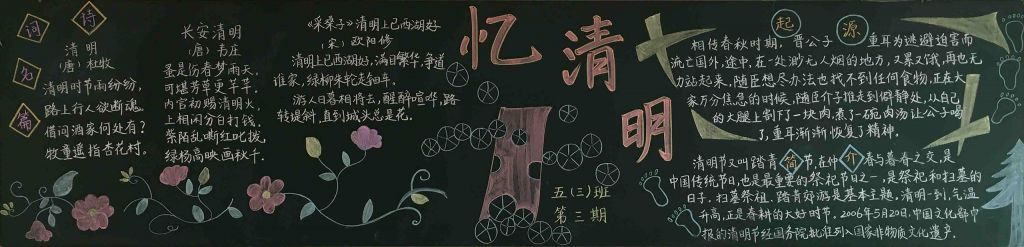 诗词名篇
清明
(唐)杜牧
清明时节雨纷纷,
路上行人欲断魂。
借问酒家何处有?
牧童遥指杏花村。
长安清明
(唐)韦庄
蚤是伤春梦雨天,
可堪芳草更芊芊。
内官初赐清明火,
上相闲分白打钱。
紫陌乱嘶红叱拨,
绿杨高映画秋千。
《采桑子》清明上巳西湖好
(宋)欧阳修
清明上巳西湖好,满目繁华,争道
谁家,绿柳朱轮走钿车。
游人日暮相将去,醒醉喧哗,路
转堤斜,直到城头总是花。
忆清明
五(三)班
第三期
起源
相传春秋时期,晋公子重耳为逃避迫害而
流亡国外,途中,在一处渺无人烟的地方,又累又饿,再也无
力站起来,随臣想尽办法也找不到任何食物,正在大
家万分焦急的时候,随臣介子推走到僻静处,从自己
的大腿上割下一块肉,煮了一碗肉汤让公子喝
了,重耳渐渐恢复了精神。
简介
清明节又叫踏青节,在仲春与暮春之交,是
中国传统节日,也是最重要的祭祀节日之一,是祭祀和扫墓的
日子。扫墓祭祖、踏青郊游是基本主题,清明一到,气温
升高,正是春耕的大好时节。2006年5月20日,中国文化部申
报的清明节经国务院批准列入国家非物质文化遗产。